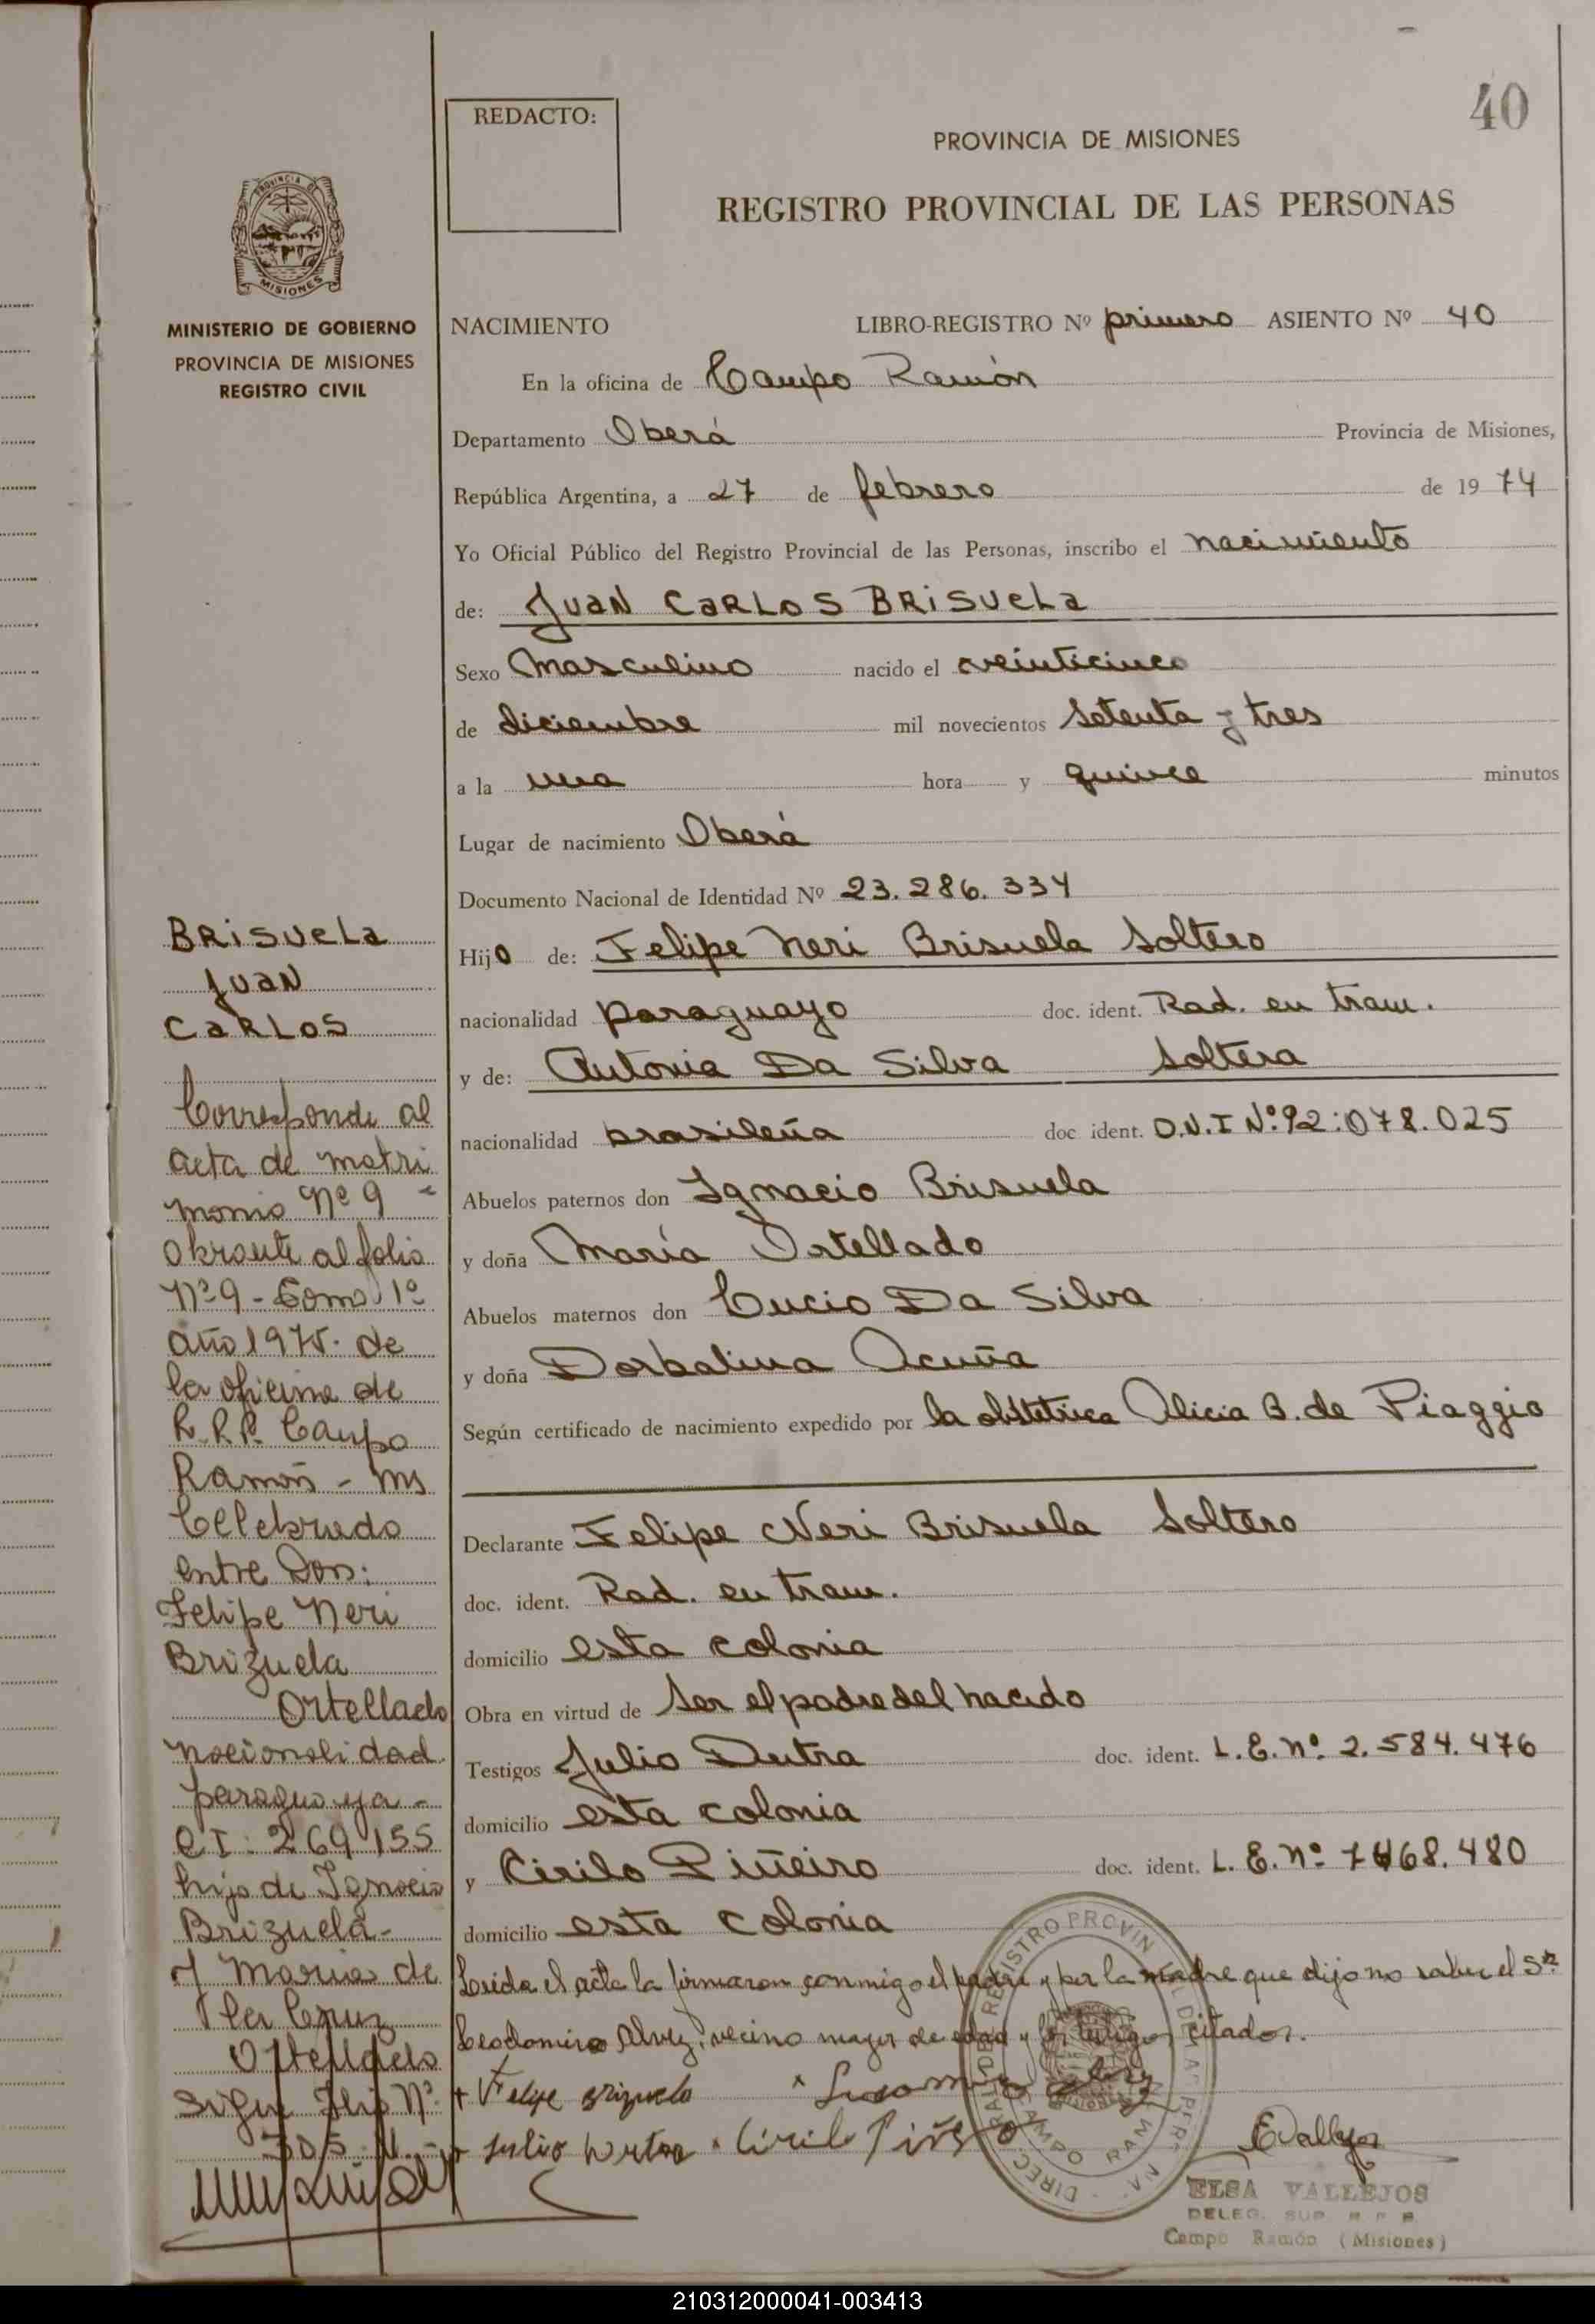 40
REDACTO:
PROVINCIA DE MISIONES
REGISTRO PROVINCIAL DE LAS PERSONAS
PROVINCIA DE
MISIONES
MINISTERIO DE GOBIERNO
PROVINCIA DE MISIONES
REGISTRO CIVIL
NACIMIENTO LIBRO-REGISTRO Nº primero ASIENTO Nº 40
En la oficina de Campo Ramón
Departamento Oberá Provincia de Misiones,
República Argentina, a 27 de febrero de 1974
Yo Oficial Público del Registro Provincial de las Personas, inscribo el nacimiento
de: Juan Carlos Brisuela
Sexo Masculino nacido el veinticinco
de diciembre mil novecientos setenta y tres
a la una hora y quince minutos
Lugar de nacimiento Oberá
Documento Nacional de Identidad Nº 23.286.334
Hijo de: Felipe Neri Brisuela Soltero
nacionalidad paraguayo doc. ident. Rad. en tram.
y de: Antonia Da Silva Soltera
nacionalidad brasileña doc. ident. D.N.I Nº: 92:078.025
Abuelos paternos don Ignacio Brisuela
y doña María Ortellado
Abuelos maternos don Lucio Da Silva
y doña Dorbalina Acuña
Según certificado de nacimiento expedido por la obstetrica Alicia B. de Piaggio
Declarante Felipe Neri Brisuela Soltero
doc. ident. Rad. en tram.
domicilio esta colonia
Obra en virtud de ser el padre del nacido
Testigos Julio Dutra doc. ident. L.E. nº. 2.584.476
domicilio esta colonia
y Cirilo Piñeiro doc. ident. L.E. nº
domicilio esta colonia
Leida el acta la firmaron conmigo el padre y por la madre que dijo no saber el Sr
Leodomiro Alvez, vecino mayor de edad y los testigos citados.
+ Felipe Brizuela
Julio Dutra Cirilo Piñeiro
EVallejos
ELSA VALLEJOS
DELEG. SUP. R P P
Campo Ramón (Misiones)
Brisuela
Juan
Carlos
Corresponde al
acta de matri
monio Nº 9 -
obrante al folio
Nº 9 - Tomo 1º
año 1975. de
la oficina de
R.P.P. Campo
Ramón - Ms
Celebrado
entre Don:
Felipe Neri
Brizuela
Ortellado
nacionalidad
paraguaya -
C I: 269155
hijo de Ignacio
Brizuela -
y Maria de
la Cruz
Ortellado
Sigue folio Nº
210312000041-003413